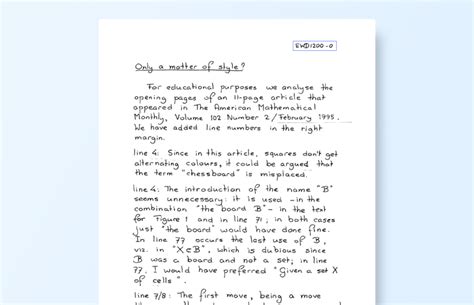 EWD1200-0
Only a matter of style?
For educational purposes we analyse the
opening pages of an 11-page article that
appeared in The American Mathematical
Monthly, Volume 102 Number 2 / February 1995.
We have added line numbers in the right
margin.
line 4: Since in this article, squares don't get
alternating colours, it could be argued that
the term "chessboard" is misplaced.
line 4: The introduction of the name "B"
seems unnecessary: it is used -in the
combination "the board B"- in the text
for Figure 1 and in line 71; in both cases
just "the board" would have done fine.
In line 77 occurs the last use of B,
viz. in "X⊂B", which is dubious since
B was a board and not a set; in line
77. I would have preferred "Given a set X
of cells".
line 7/8: The first move, being a move